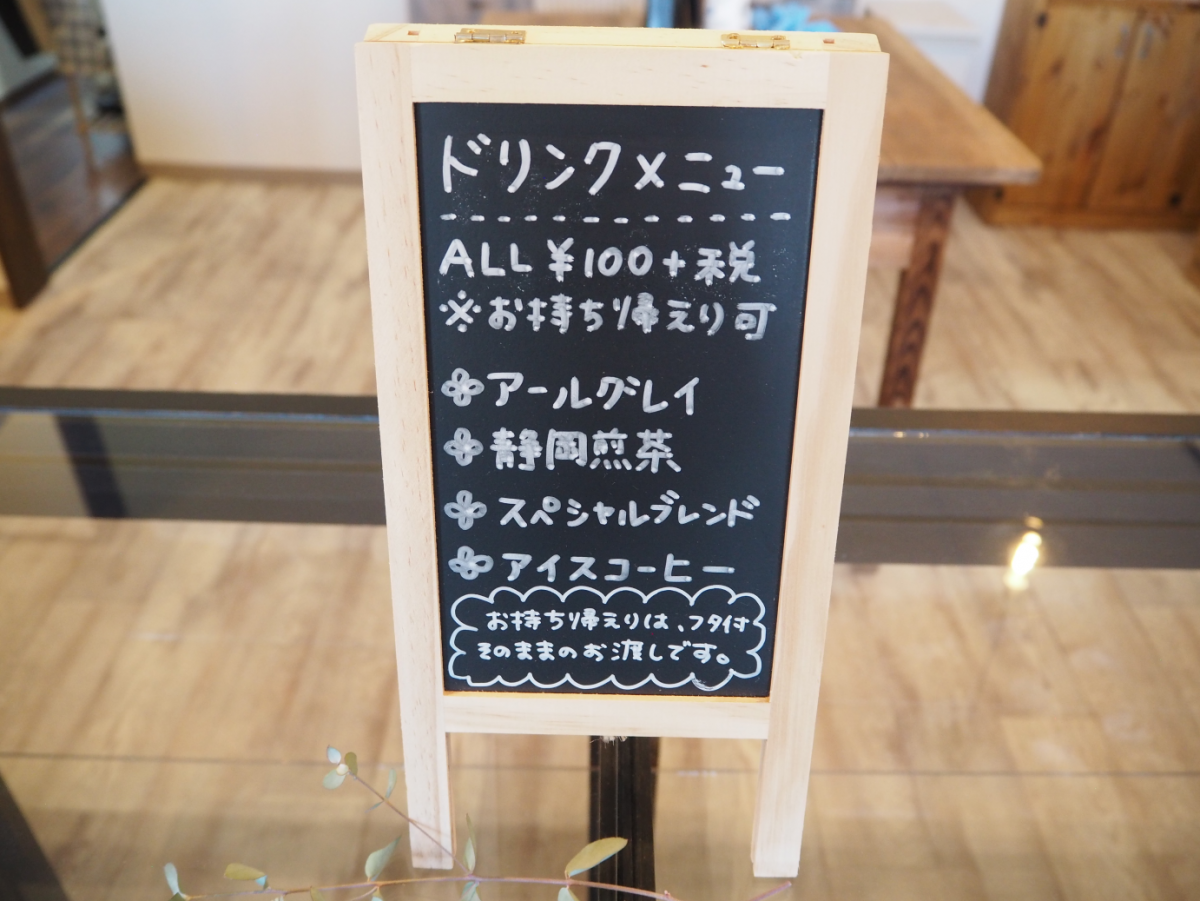 ドリンクメニュー
ALL ¥100+税
※お持ち帰えり可
アールグレイ
静岡煎茶
スペシャルブレンド
アイスコーヒー
お持ち帰えりは、フタ付
そのままのお渡しです。